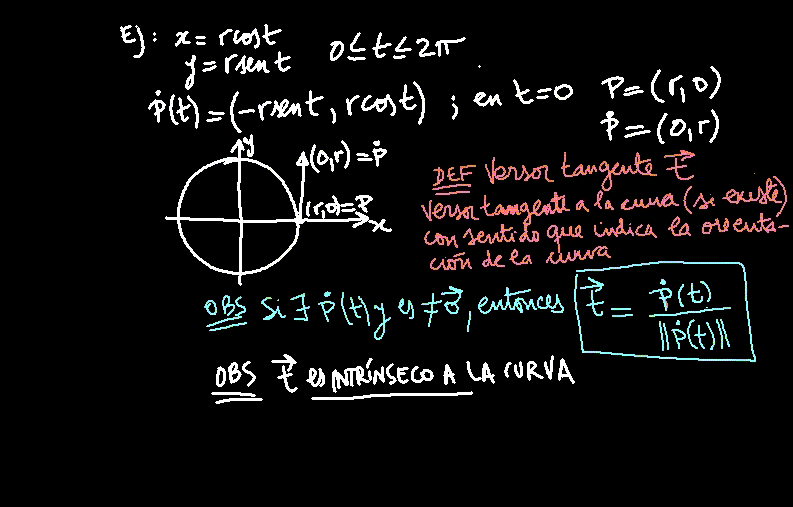 Ej: x = rcost
y = rsent 0 ≤ t ≤ 2π
ṗ(t) = (-rsent, rcost) ; en t=0 P = (r,0)
Ṗ = (0,r)
y
(0,r) = ṗ
(r,0) = P
x
DEF Versor tangente t⃗
Versor tangente a la curva (si existe)
con sentido que indica la orienta-
ción de la curva
OBS Si ∃ ṗ(t) y es ≠ 0⃗, entonces t⃗ = ṗ(t) / ||ṗ(t)||
OBS t⃗ es INTRÍNSECO A LA CURVA